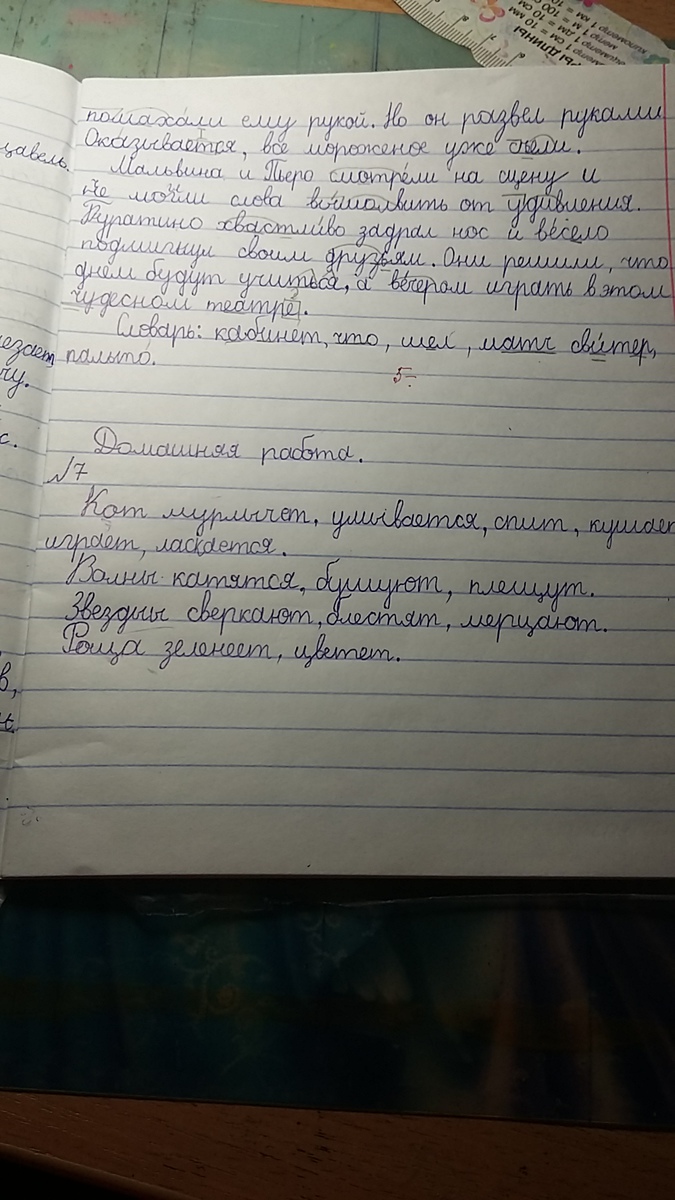 помахали ему рукой. Но он развел руками
Оказывается, всё мороженое уже съели.
Мальвина и Пьеро смотрели на сцену и
не могли слова вымолвить от удивления.
Буратино хвастливо задрал нос и весело
подмигнул своим друзьям. Они решили, что
днём будут учиться, а вечером играть в этом
чудесном театре.
Словарь: кабинет, что, шел, матч свитер,
пальто.
5-
Домашняя работа.
№7
Кот мурлычет, умывается, спит, кушает
играет, ласкается.
Волны катятся, бушуют, плещут.
Звезды сверкают, блестят, мерцают.
Роща зеленеет, цветет.
щавель.
езает
чу.
с.
в,